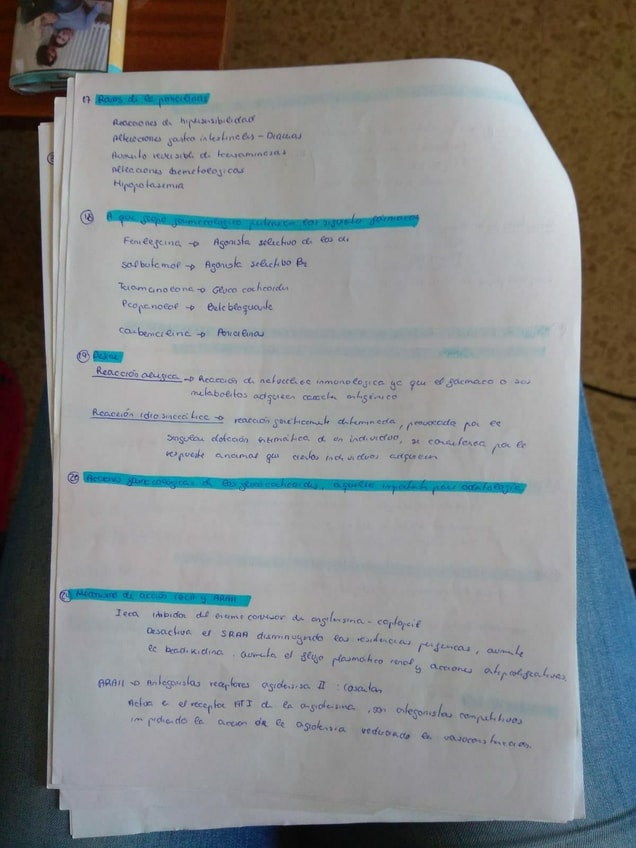 17 RAMS de la penicilinas
Reacciones de hipersensibilidad
Alteraciones gastrointestinales - Diarreas
Aumento reversible de transaminasas
Alteraciones hematologicas
Hipopotasemia
18 A que grupo farmacológico pertenecen los siguientes fármacos
Fenilefrina → Agonista selectivo de los α1
Salbutamol → Agonista selectivo B2
Triamcinolona → Gluco corticoides
Propanolol → Betabloqueante
Carbenicilina → Penicilinas
19 Define
Reacción alergica → Reacción de naturaleza inmunologica ya que el fármaco o sus
metabolitos adquieren caracter antigenico
Reacción idiosincrática → reacción genéticamente determinada, provocada por la
singular dotación enzimática de un individuo, se caracteriza por la
respuesta anormal que ciertos individuos adquieren
20 Acciones farmacológicas de los glucocorticoides, aquello importante para odontología
21 Mecanismo de acción IECA y ARAII
Ieca inhibidor del enzima conversor de angitensina - captopril
Desactiva el SRAA disminuyendo las resistencias perifericas, aumenta
la bradikidina, aumenta el flujo plasmático renal y acciones antiproliferativas
ARAII → Antagonistas receptores agiotensina II : Losartan
Actua en el receptor ATI de la angiotensina, son antagonistas competitivos
impidiendo la accion de la agiotensia reduciendo la vasoconstriccion